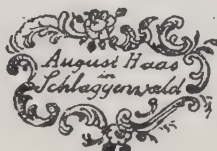 August Haas
in
Schlaggenwald